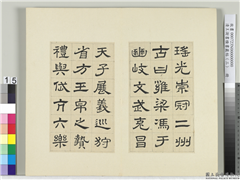 瑤光崇冠二州
古曰雍梁馮于
豳岐文武克昌
天子展義巡狩
省方王帛之贄
禮與岱亢六樂